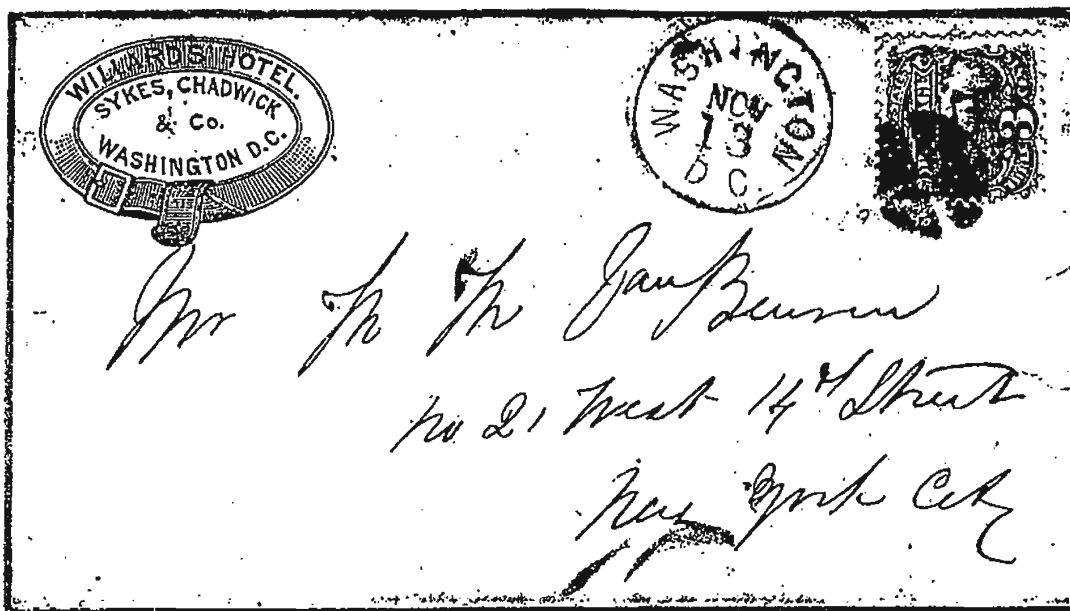 WILLARDS' HOTEL.
SYKES, CHADWICK
& Co.
WASHINGTON D.C.
WASHINGTON
NOV
13
D C.
3
Mr M M Van Beuren
No 21 West 14th Street
New York City